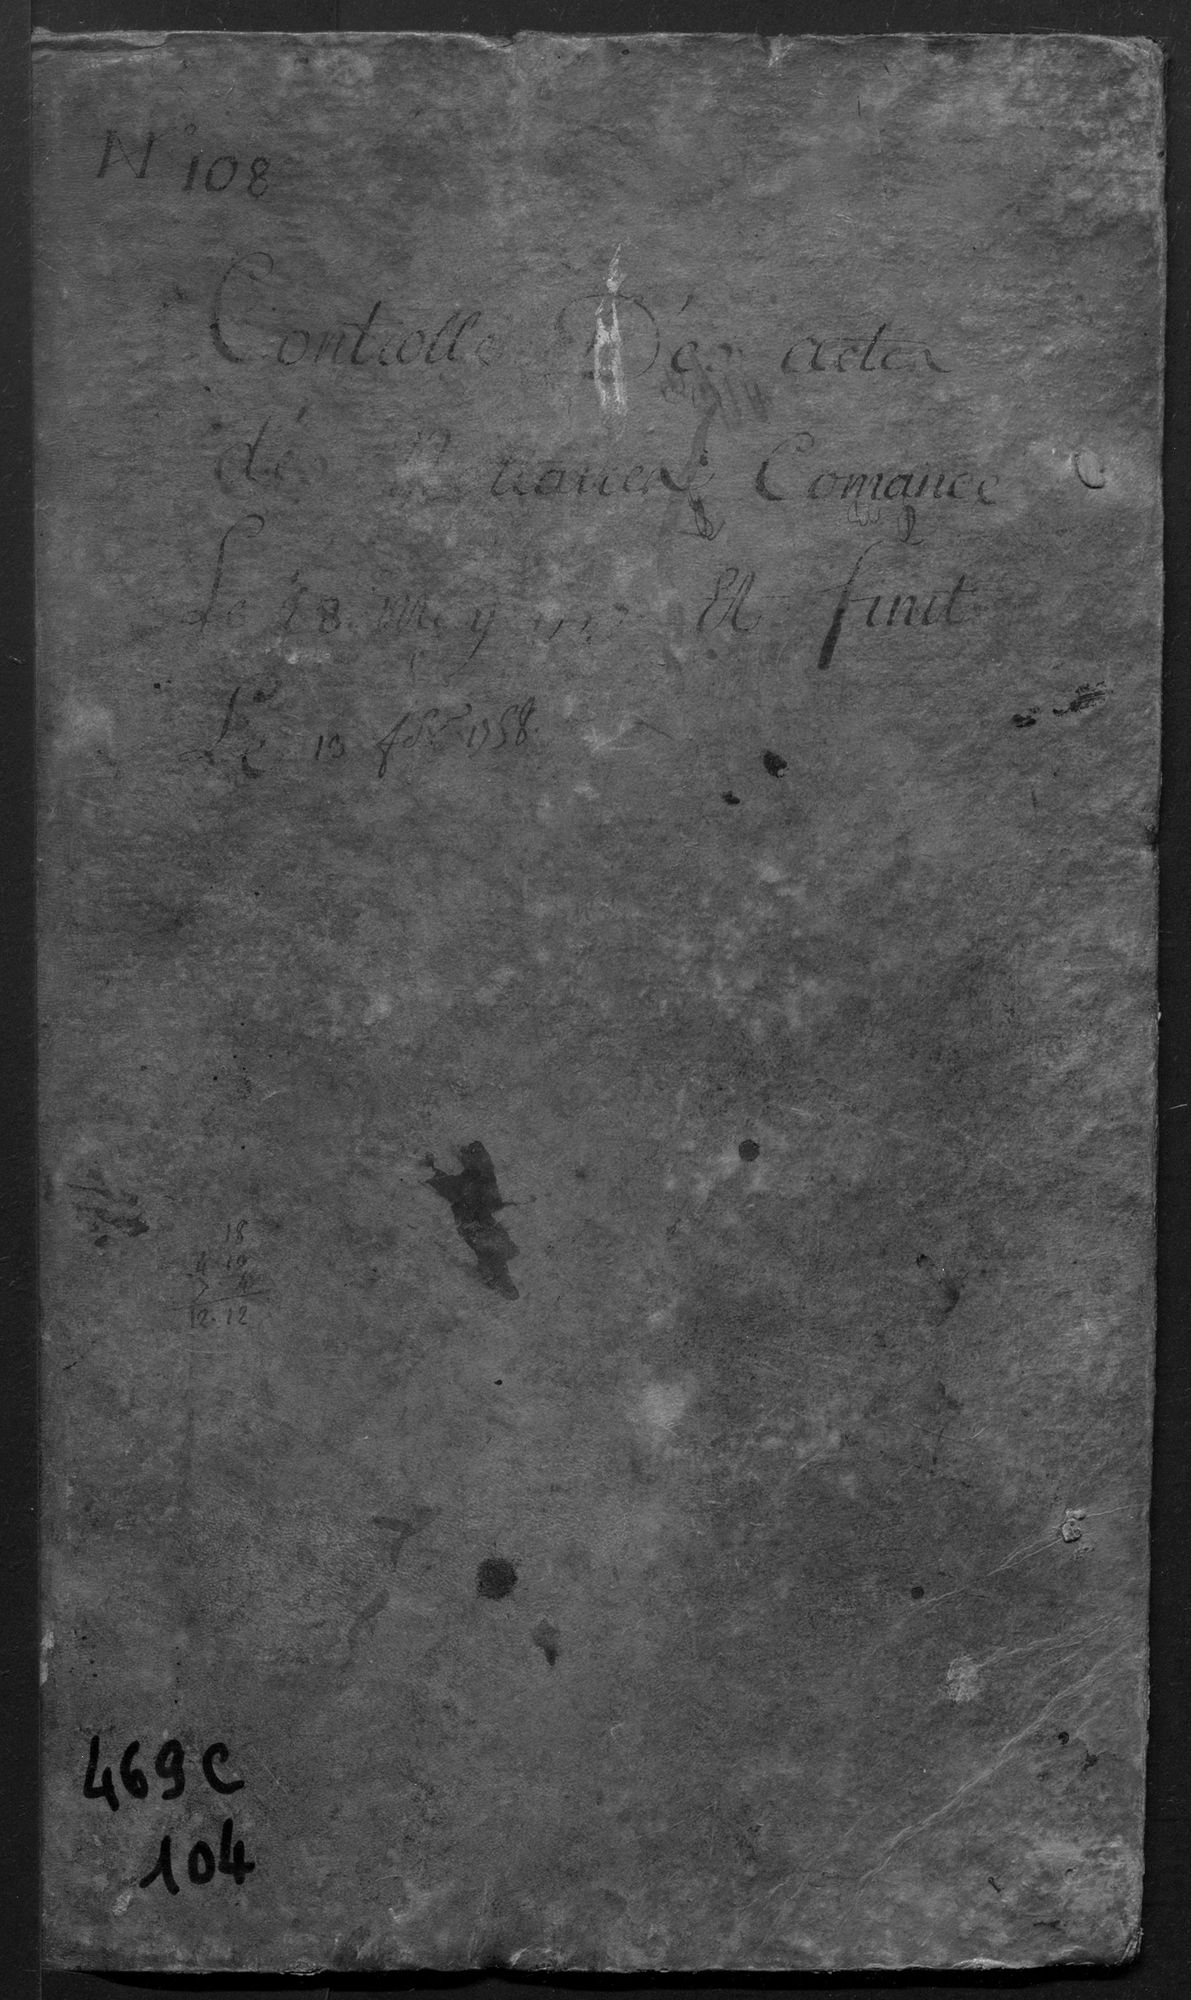 N° 108
Controlle Dés actes
dés Notaires Comance
Le 28 May Et finit
Le 13 fev 1758.
18
4 10
7 4
12. 12
469 C
104